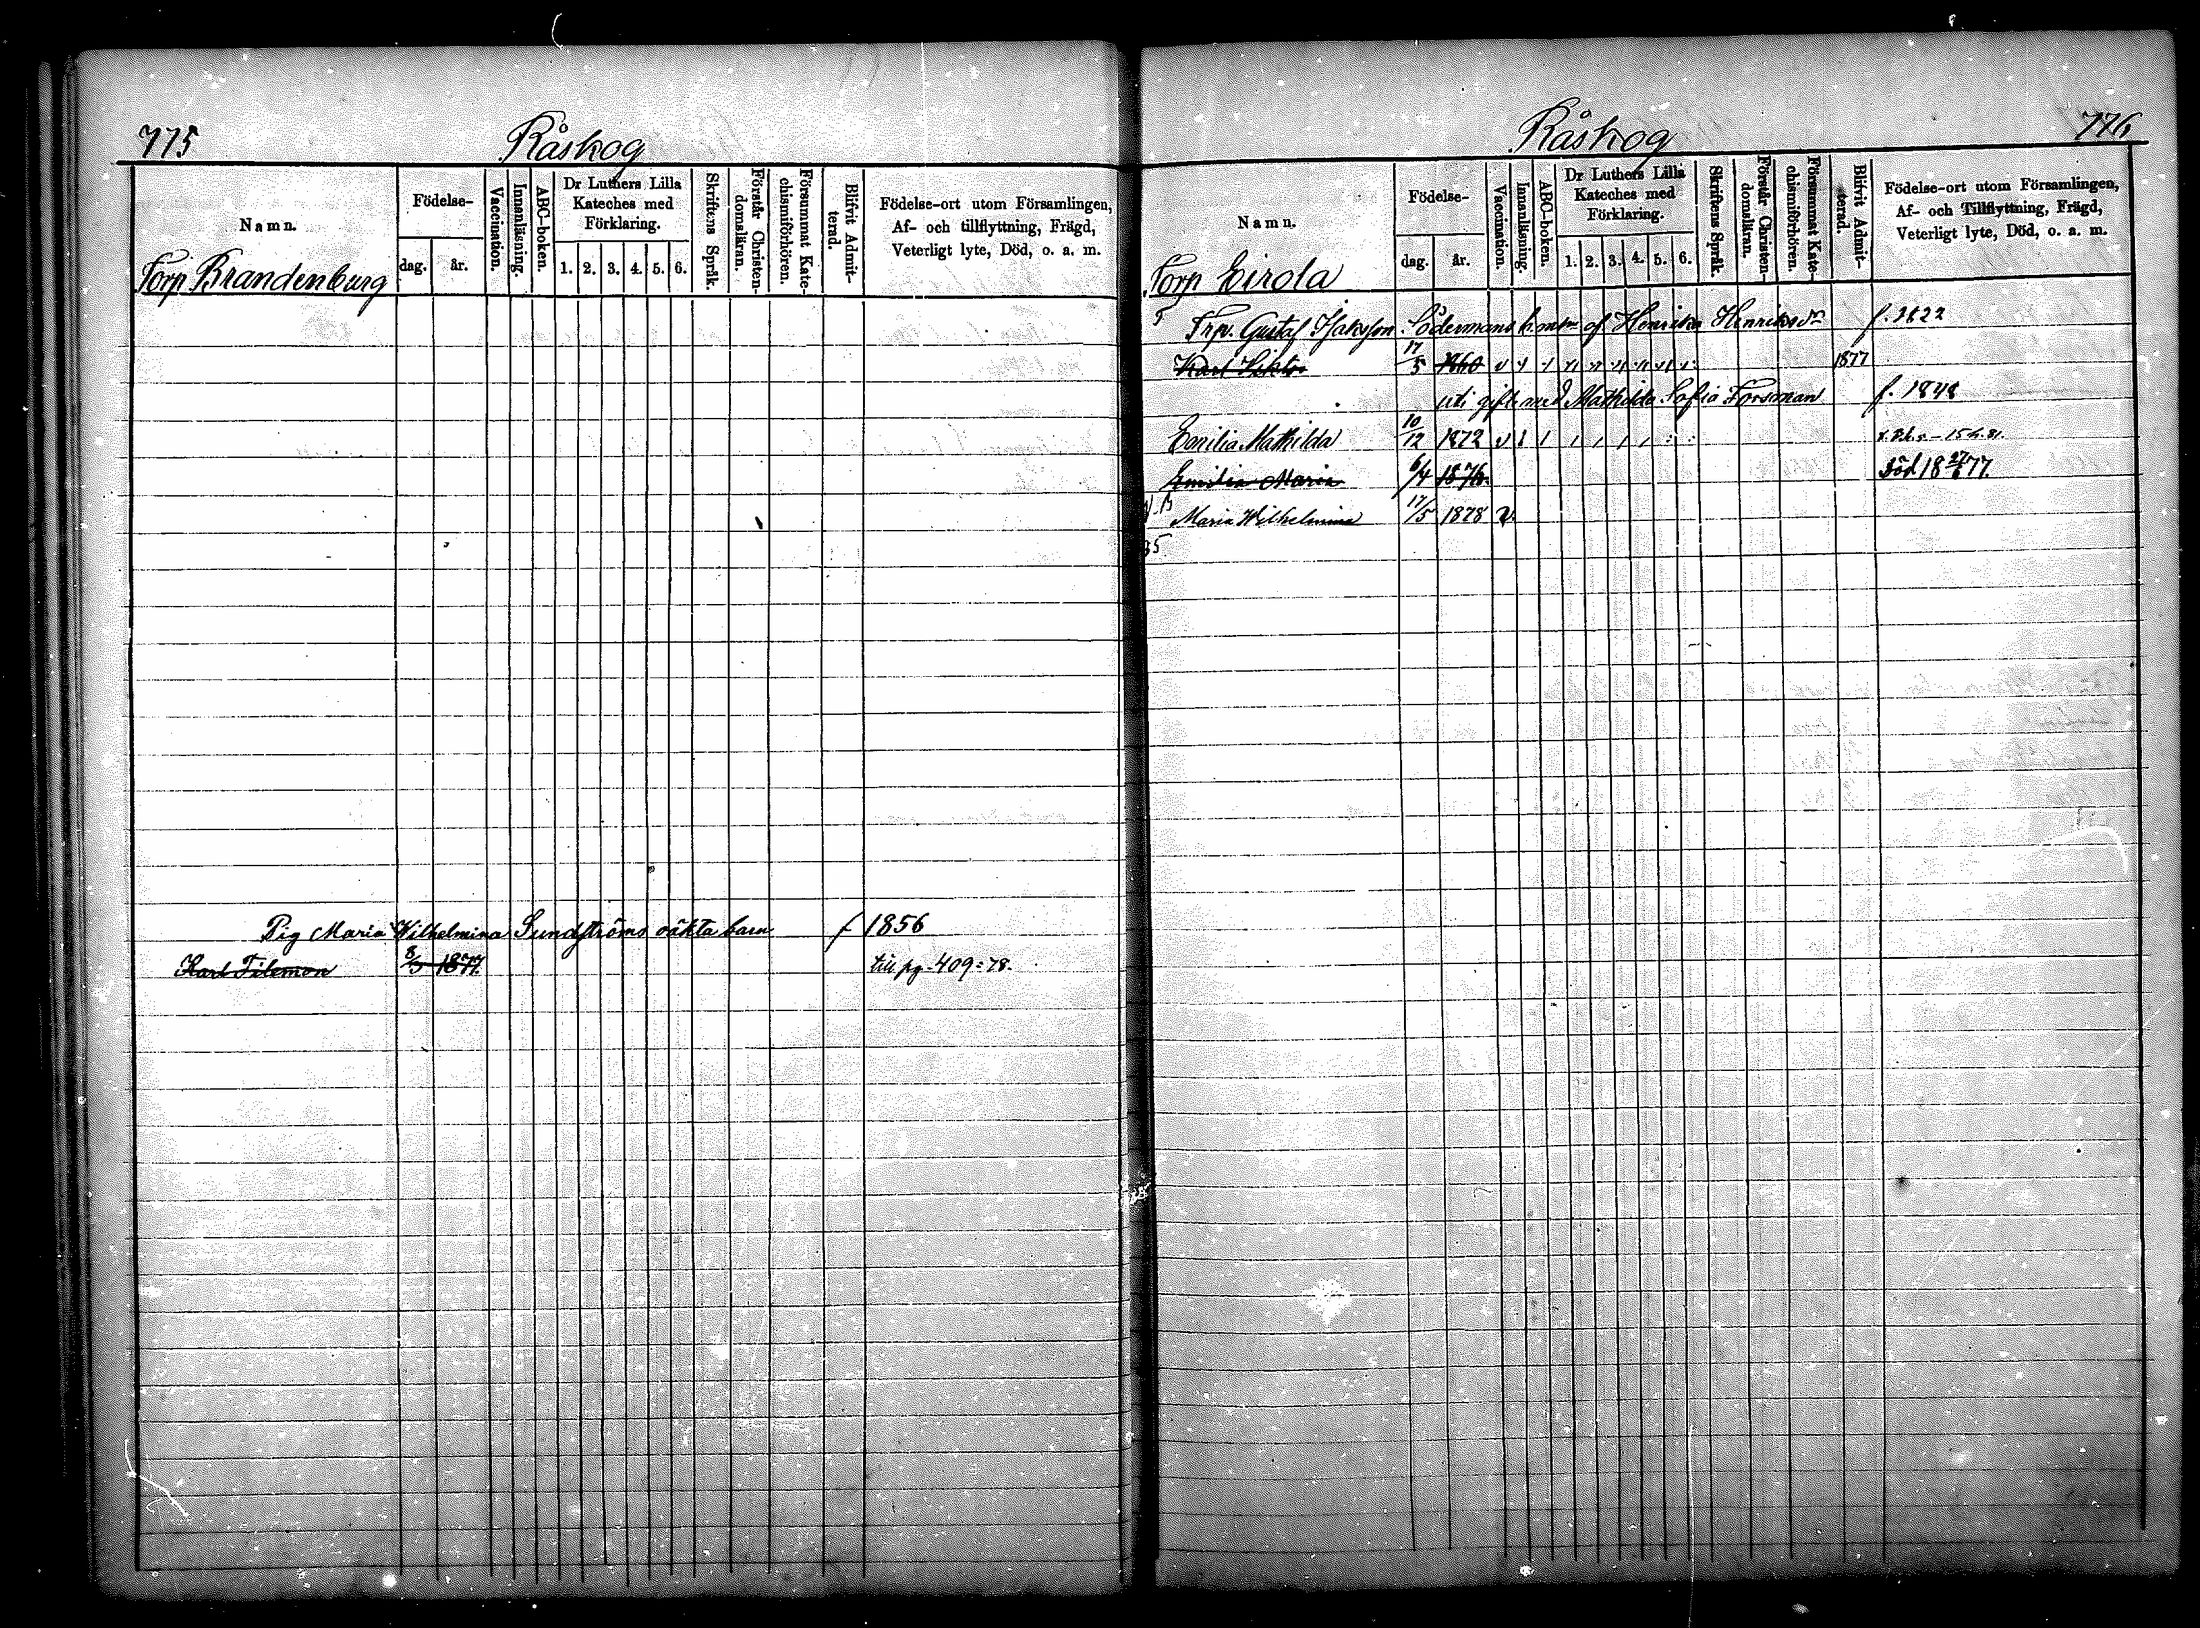 775
Råskog
Namn.
Födelse-
dag.
år.
Vaccination.
Innanläsning.
ABC-boken.
Dr Luthers Lilla Kateches med Förklaring.
1. 2. 3. 4. 5. 6.
Skriftens Språk.
Förstår Christendomsläran.
Försummat Katechismiförhören.
Blifvit Admitterad.
Födelse-ort utom Församlingen,
Af- och tillflyttning, Frägd,
Veterligt lyte, Död, o. a. m.
Torp Brandenburg
Pig Maria Wilhelmina Sundströms oäkta barn f 1856
Karl Filemon 8/3 1877. till pg. 409=78.
776
Råskog
Namn.
Födelse-
dag.
år.
Vaccination.
Innanläsning.
ABC-boken.
Dr Luthers Lilla Kateches med Förklaring.
1. 2. 3. 4. 5. 6.
Skriftens Språk.
Förstår Christendomsläran.
Försummat Katechismiförhören.
Blifvit Admitterad.
Födelse-ort utom Församlingen,
Af- och Tillflyttning, Frägd,
Veterligt lyte, Död, o. a. m.
Torp Eirola
Trp. Gustaf Isaksson Södermans af Henrika Henriksdr f. 1822
Karl Viktor 17/5 1860 1877
uti gifte med Mathilda Sofia Forsman f. 1848
Emilia Mathilda 10/12 1872
Emilia Maria 6/4 1876. död 18 77.
Maria Wilhelmina 17/5 1878 v.